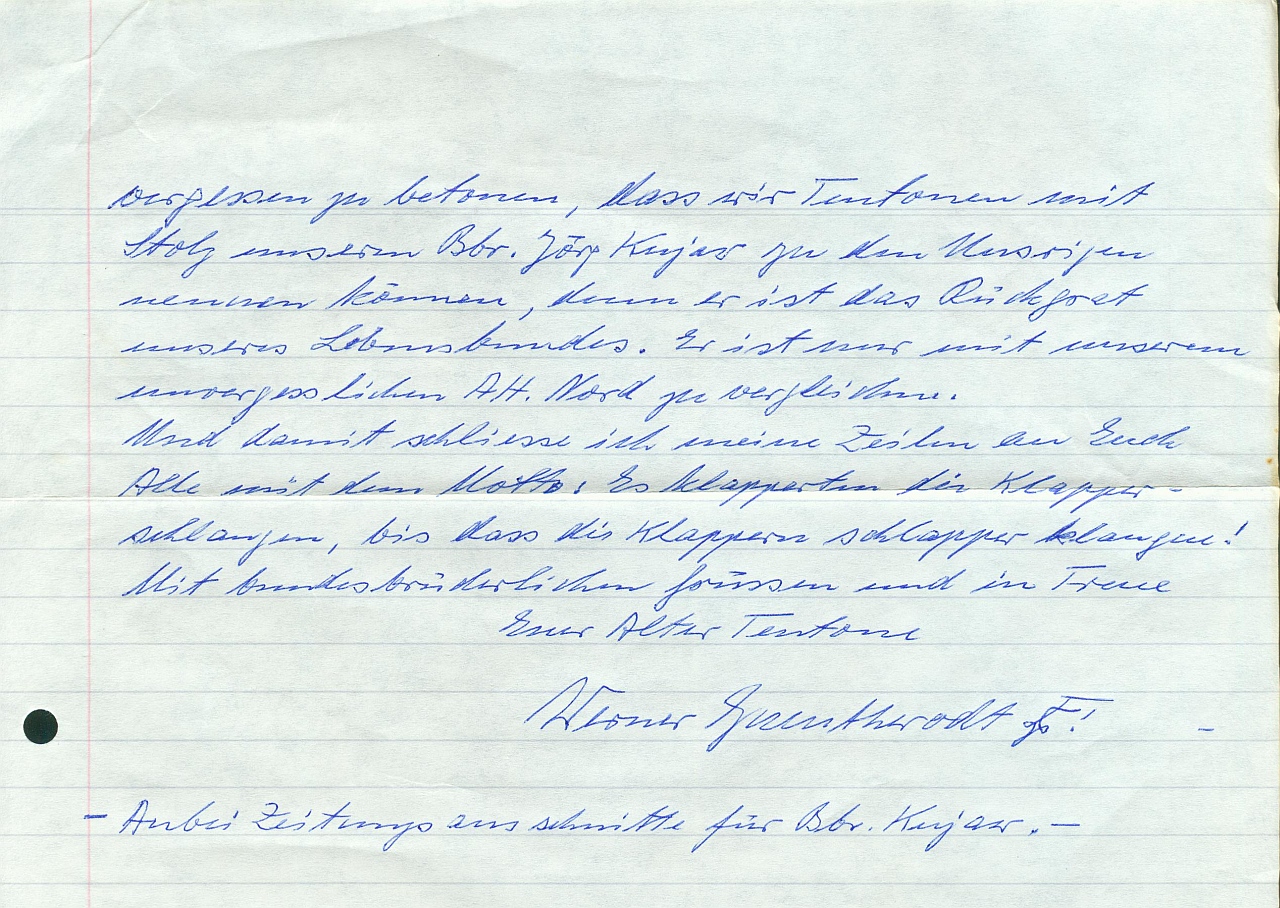 vergessen zu betonen, dass wir Teutonen mit
Stolz unseren Bbr. Jörg Kujaw zu den Unsrigen
nennen können, denn er ist das Rückgrat
unseres Lebensbundes. Er ist nur mit unserem
unvergesslichen A.H. Nord zu vergleichen.
Und damit schliesse ich meine Zeilen an Euch
Alle mit dem Motto: Es klapperten die Klapper-
schlangen, bis dass die Klappern schlapper klangen!
Mit bundesbrüderlichen Grüssen und in Treue
Euer Alter Teutone
Werner
- Anbei Zeitungsausschnitte für Bbr. Kujaw. -